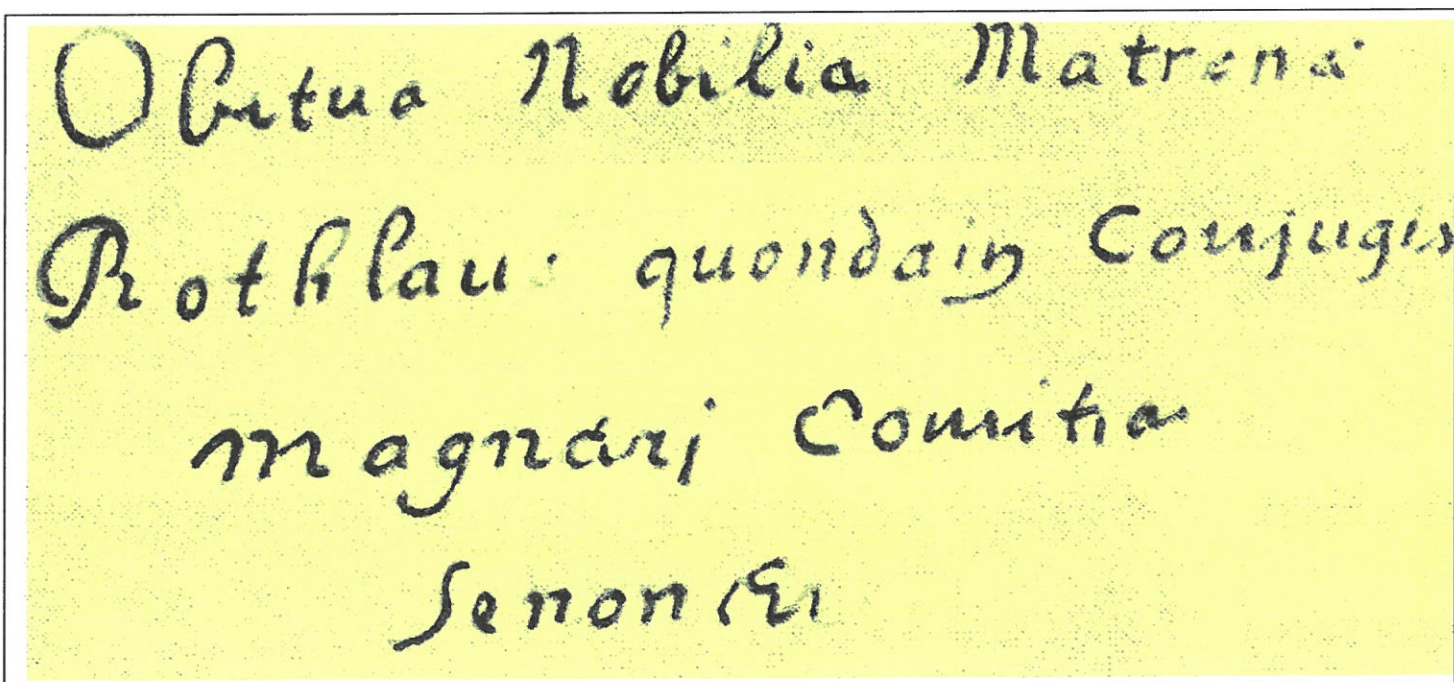 Obitus Nobilis Matrona
Rothlau quondam Conjugis
Magnarj Comitis